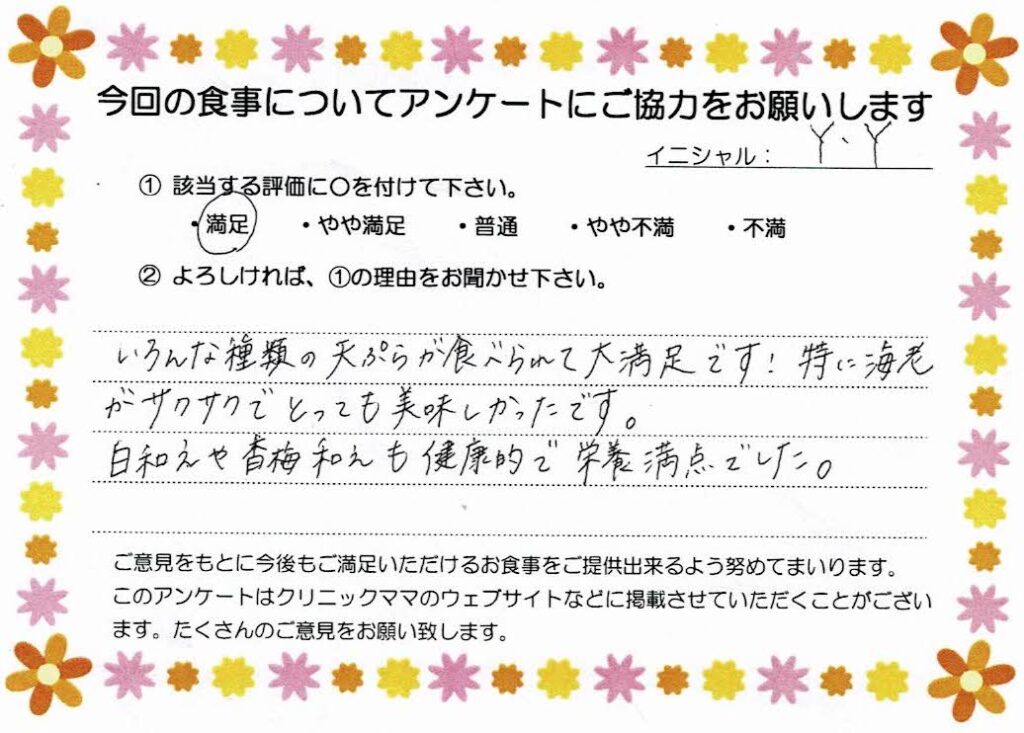 今回の食事についてアンケートにご協力をお願いします
イニシャル： Y、Y
① 該当する評価に〇を付けて下さい。
・満足 ・やや満足 ・普通 ・やや不満 ・不満
② よろしければ、①の理由をお聞かせ下さい。
いろんな種類の天ぷらが食べられて大満足です！特に海老
がサクサクでとっても美味しかったです。
白和えや香梅和えも健康的で栄養満点でした。
ご意見をもとに今後もご満足いただけるお食事をご提供出来るよう努めてまいります。
このアンケートはクリニックママのウェブサイトなどに掲載させていただくことがござい
ます。たくさんのご意見をお願い致します。